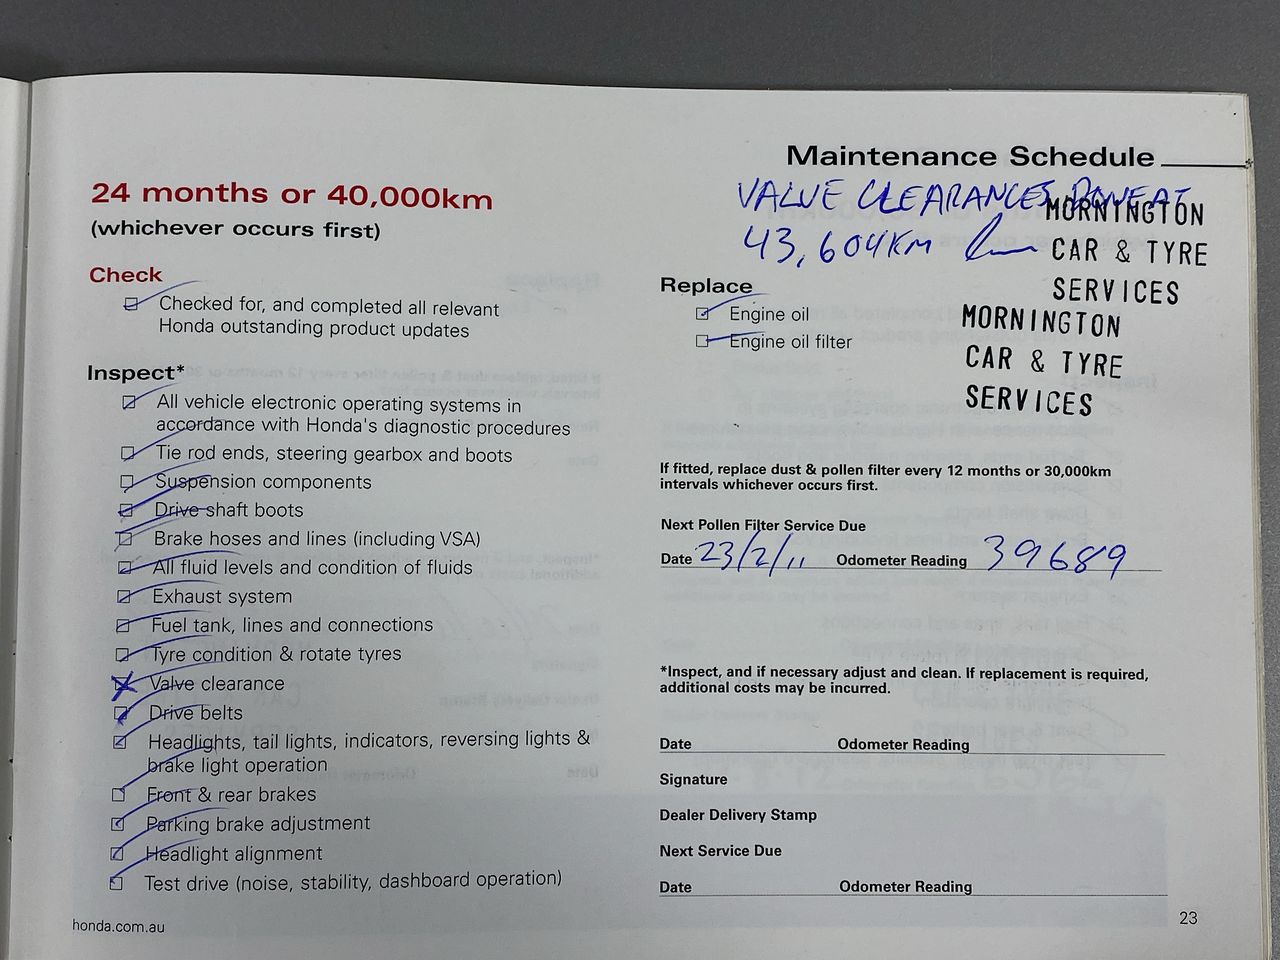 Maintenance Schedule
24 months or 40,000km
(whichever occurs first)
Check
Checked for, and completed all relevant
Honda outstanding product updates
Inspect*
All vehicle electronic operating systems in
accordance with Honda's diagnostic procedures
Tie rod ends, steering gearbox and boots
Suspension components
Drive shaft boots
Brake hoses and lines (including VSA)
All fluid levels and condition of fluids
Exhaust system
Fuel tank, lines and connections
Tyre condition & rotate tyres
Valve clearance
Drive belts
Headlights, tail lights, indicators, reversing lights &
brake light operation
Front & rear brakes
Parking brake adjustment
Headlight alignment
Test drive (noise, stability, dashboard operation)
honda.com.au
VALVE CLEARANCES DONE AT
43,604KM
MORNINGTON
CAR & TYRE
SERVICES
MORNINGTON
CAR & TYRE
SERVICES
Replace
Engine oil
Engine oil filter
If fitted, replace dust & pollen filter every 12 months or 30,000km
intervals whichever occurs first.
Next Pollen Filter Service Due
Date 23/2/11 Odometer Reading 39689
*Inspect, and if necessary adjust and clean. If replacement is required,
additional costs may be incurred.
Date Odometer Reading
Signature
Dealer Delivery Stamp
Next Service Due
Date Odometer Reading
23